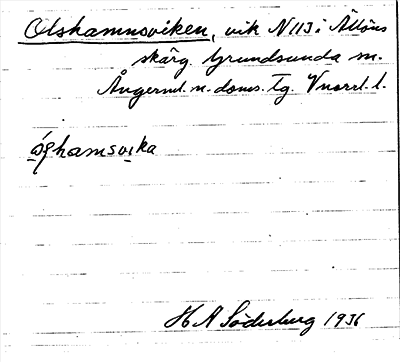 Olshamnsviken, vik N 113 i Ällöns
skärg. Grundsunda sn.
Ångerml. n. doms. Tg. Vnorrl. l.
hamsvika
H A Söderberg 1936